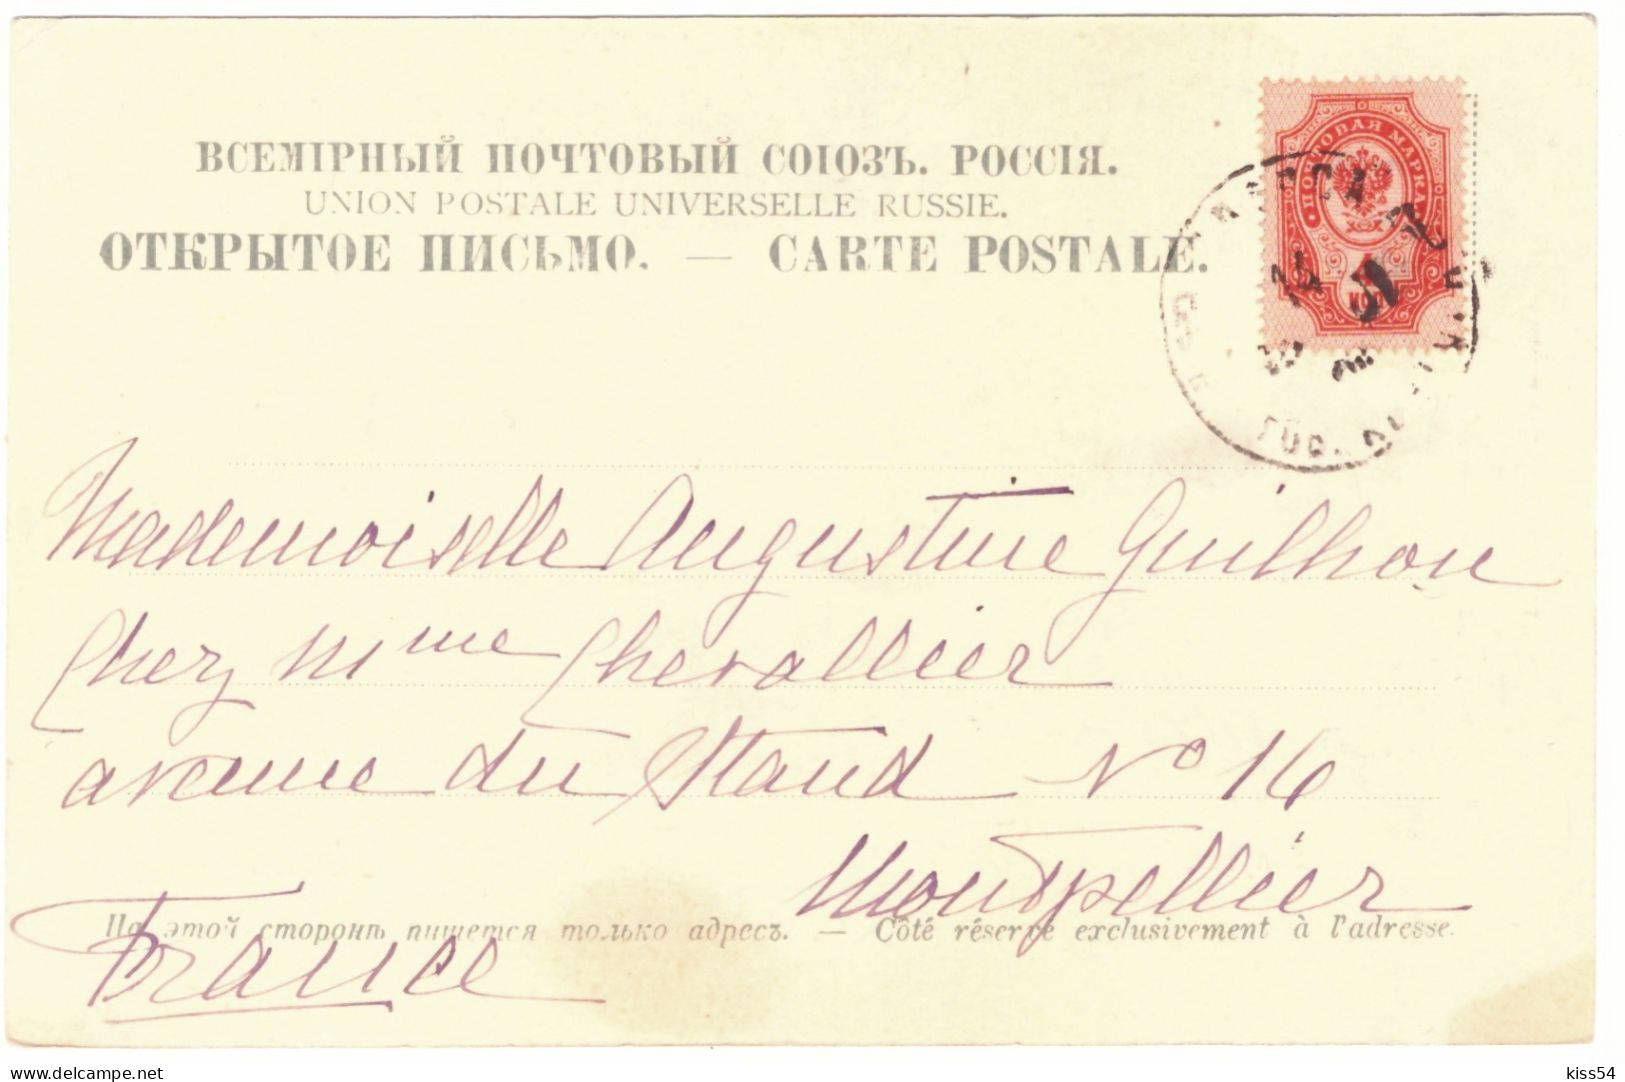 ВСЕМІРНЫЙ ПОЧТОВЫЙ СОЮЗЪ. РОССІЯ.
UNION POSTALE UNIVERSELLE RUSSIE.
ОТКРЫТОЕ ПИСЬМО. — CARTE POSTALE.
ПОЧТОВАЯ МАРКА
Mademoiselle Augustine Guilhon
Chez Mme Chevallier
avenue du Stand No 16
Montpellier
На этой сторонѣ пишется только адресъ. — Côté réservé exclusivement à l'adresse.
France
kiss54